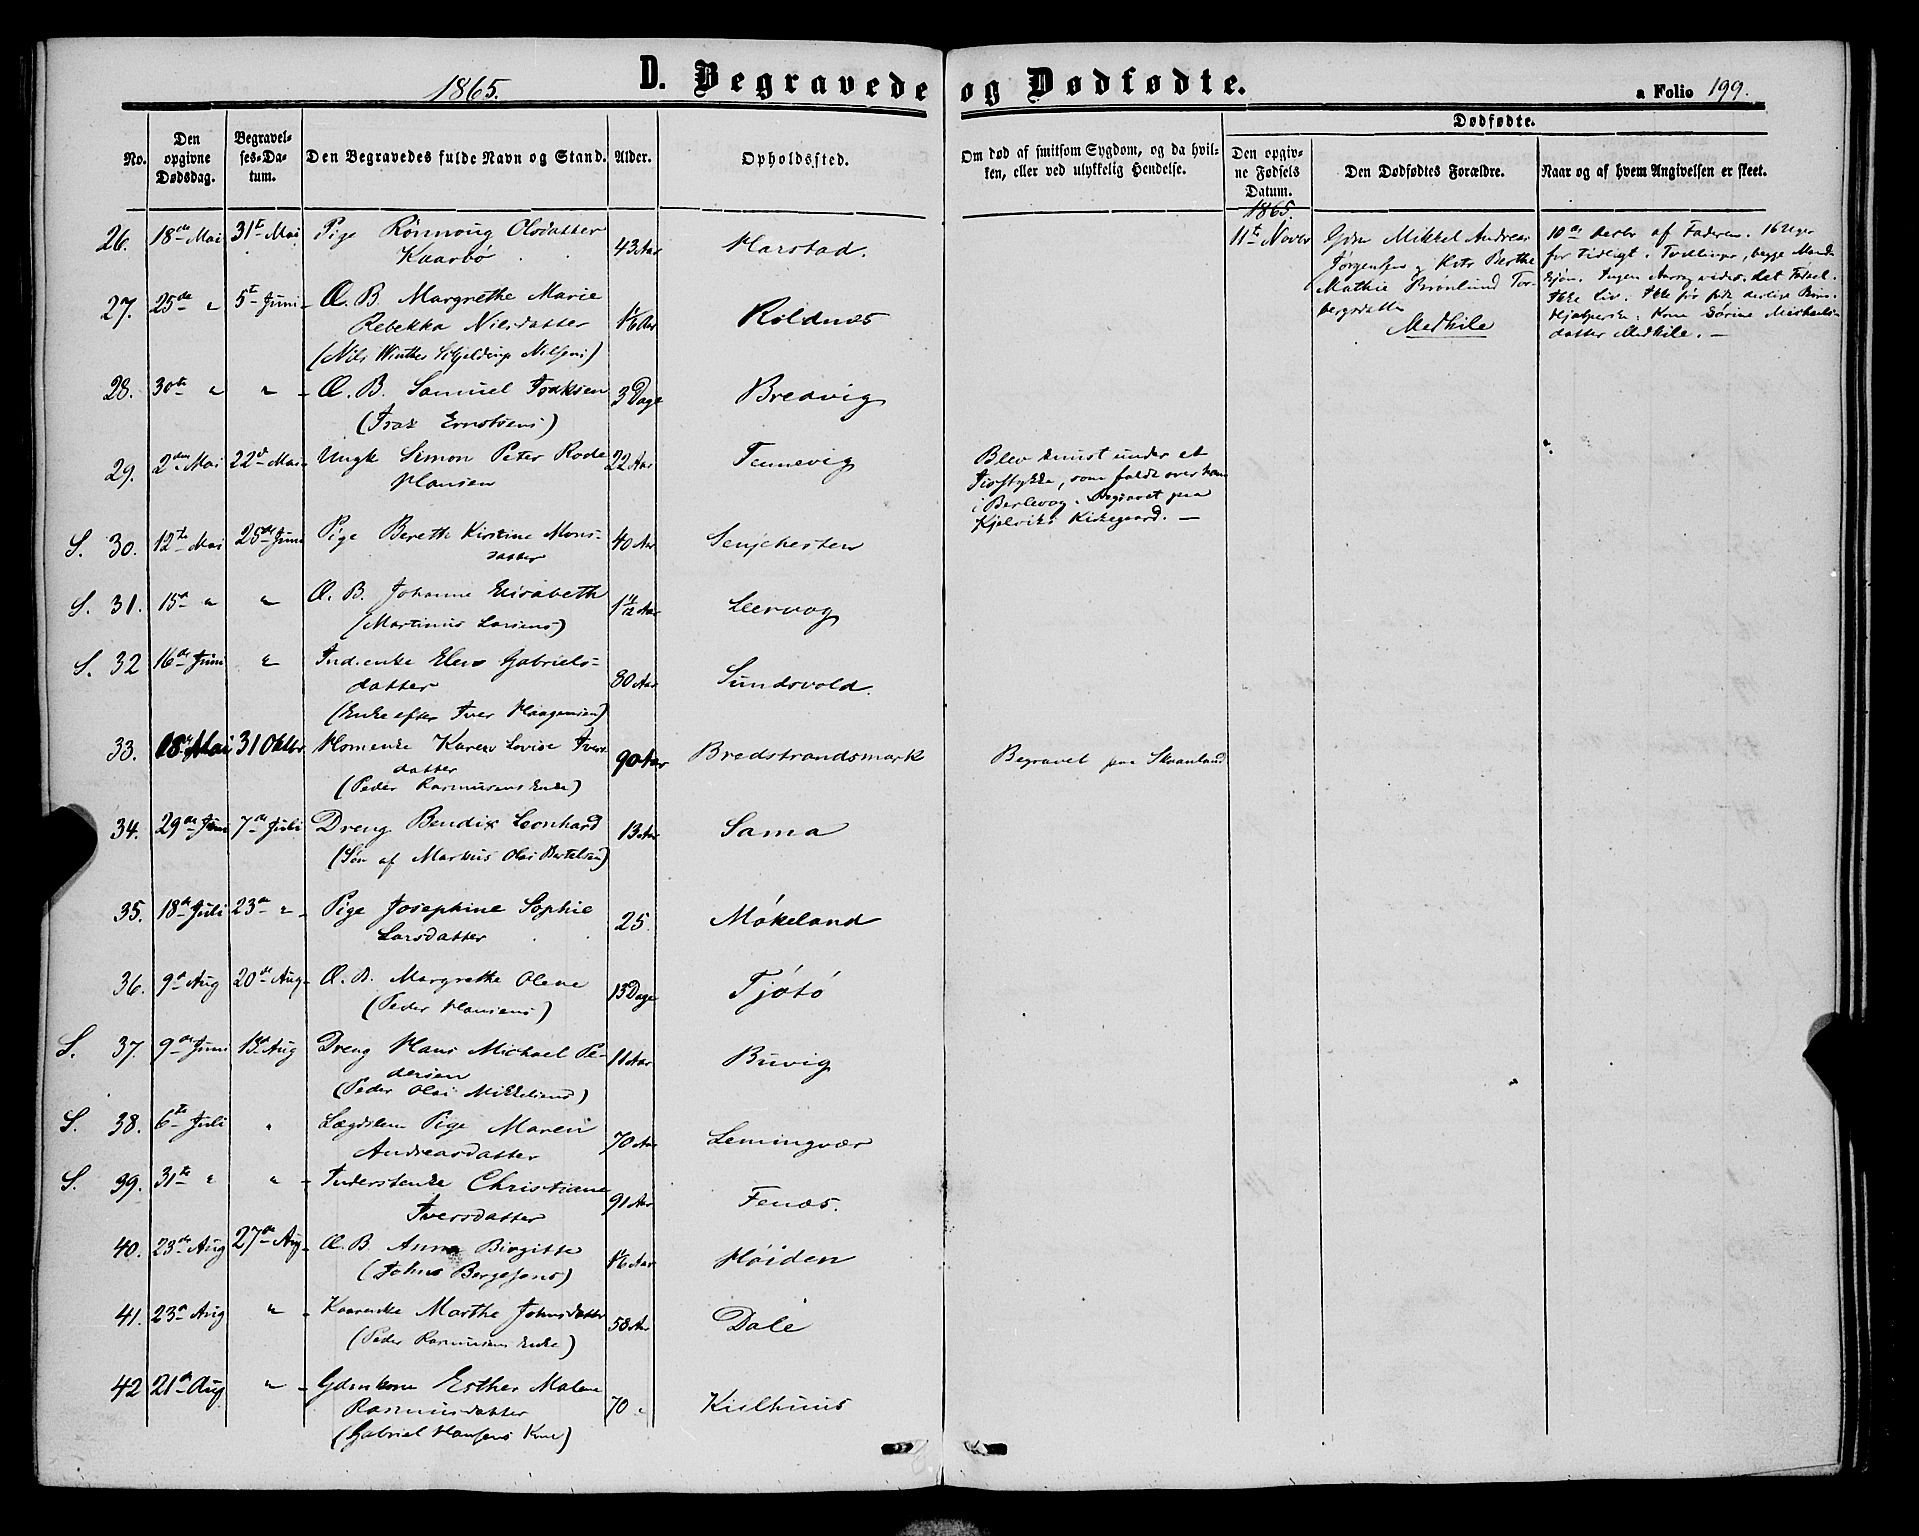 1865.
D. Begravede og Dødfødte.
a Folio 199.
No.
Den opgivne Dødsdag.
Begravelses-Datum.
Den Begravedes fulde Navn og Stand.
Alder.
Opholdssted.
Om død af smitsom Sygdom, og da hvilken, eller ved ulykkelig Hendelse.
Dødfødte.
Den opgivne Fødsels Datum.
Den Dødfødtes Forældre.
Naar og af hvem Angivelsen er skeet.
26. 18de Mai 31te Mai Pige Rønnoug Olsdatter 43 Aar Harstad.
Kaarbø
27. 25de " 5te Juni Æ. B. Margrethe Marie
Rebekka Nilsdatter 1/6 Aar Roldnæs
(Nils Winther Schjeldrup Nilsens)
28. 30te " " Æ. B. Samuel 3 Dage Bredvig
29. 2den Mai 22de Mai Ungk Simon Peter Rode 22 Aar Tennevig
Hansen
S. 30. 12te Mai 25de Juni Pige Bereth Kirstine Mons- 40 Aar Senjehesten
datter
S. 31. 15de " " Æ. B. Johanne Elisabeth 1 11/12 Aar Leervog
(Martinus Larsens)
S. 32 16de Juni " Elen Gabriels-
datter 80 Aar Sundsvold.
(Enke efter Iver Haagensen)
33. 18de Mai 31 Oktbr. Karen Lovise Ivers
datter 90 Aar Bredstrandsmark
(Peder Rasmusens Enke)
34. 29de Juni 7de Juli Dreng Bendix Leonhard 13 Aar Sama
(Søn af Markus Olai Bertelsen)
35. 18de Juli 23de " Pige Josephine Sophie 25. Møkeland
Larsdatter
36. 9de Aug 20de Aug Æ. B. Margrethe Olene 13 Dage Tjøtø
(Peder Hansens)
S. 37. 9de Juni 13de Aug Dreng Hans Michael Pe- 11 Aar Buvig
dersen
(Peder Olai Mikkelsens)
S. 38. 6te Juli " Lægdslem Pige Maren 70 Aar Lemingvær
Andreasdatter
S. 39. 31te " " Inderstenke Christiane 91 Aar Fenæs.
Iversdatter
40. 23de Aug 27de Aug Æ. B. Anna Birgitte 1/6 Aar Høiden
(Johns Bergesens)
41. 23de Aug " Kaarenke Marthe Johnsdatter 58 Aar Dale
(Peder Rasmusens Enke)
42 21de Aug " Gdmkone Esther Malene
Rasmusdatter 70 " Kielhuus
(Gabriel Hansens Kone)
Blev knust under et
som faldt over ham
i Berlevog. Begravet paa
Kjelviks Kirkegaard. —
Begravet paa Skaanland
1865.
11te Novbr
Gdm Mikkel Andreas
Jørgensen og Kstr Berthe
Mathie Brønlund Tor-
bergsdatter
Medkile
10de Decbr af Faderen. 16 Uger
for tidligt. Tvillinger, begge Mand-
kjøn. Ingen
Ikke Liv.
Hjælperske: Kone Sørine Michaels-
datter Medkile. —